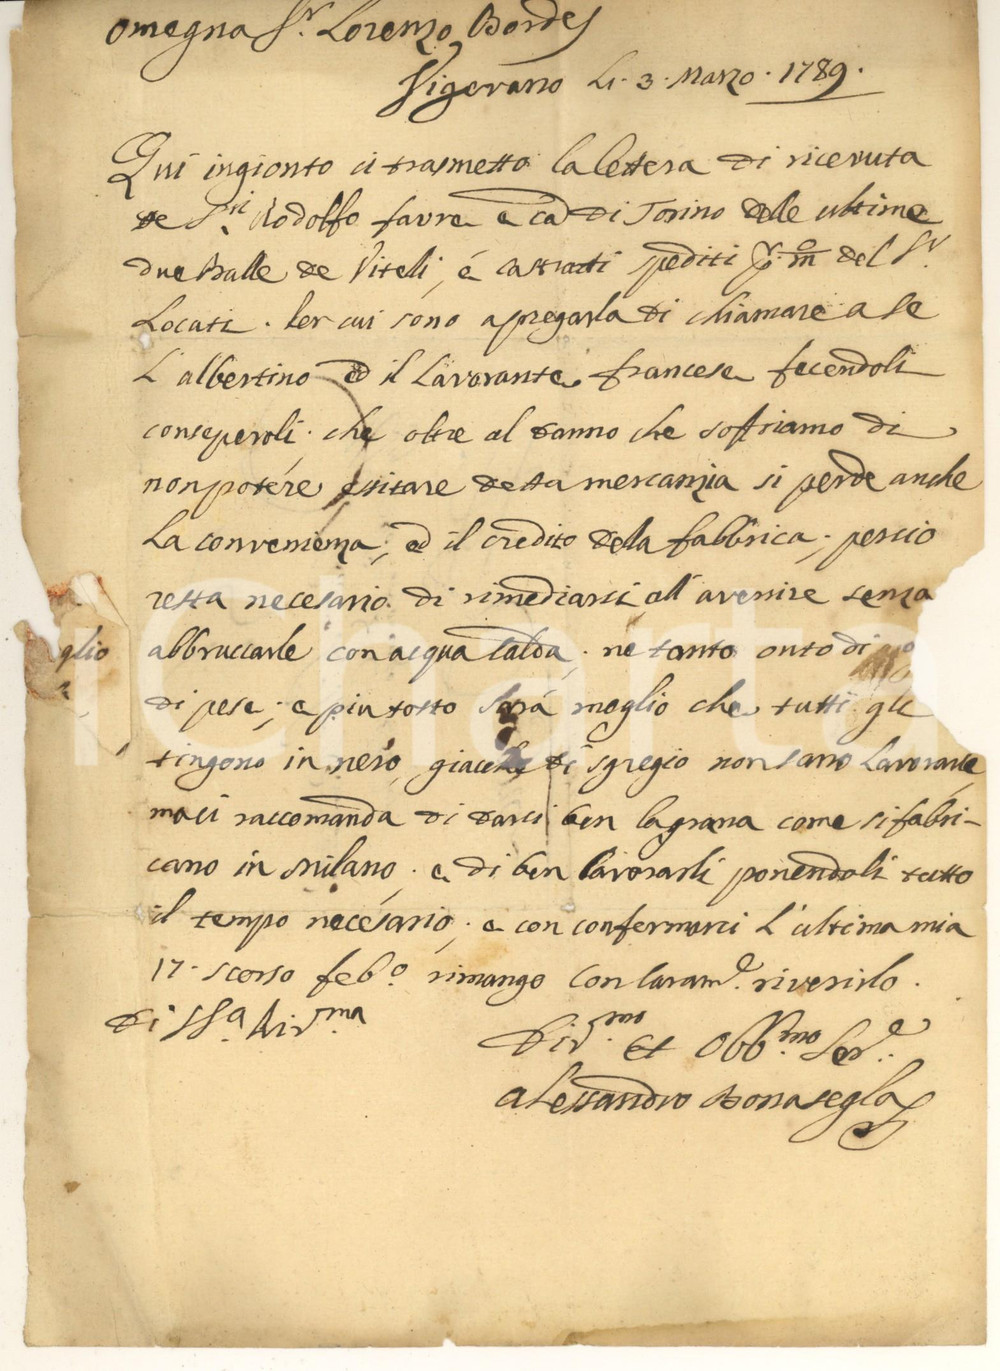 Omegna Sr. Lorenzo Bordes
Vigevano Li. 3. Marzo. 1789.
Qui ingionto ci trasmetto la lettera di ricevuta
de Sri. Rodolfo favre e ca di Torino delle ultime
due Balle de Viteli, é castratti spediti p. m del Sr.
Locati. Per cui sono apregarla di chiamare a se
L'albertino ed il Lavorante francese fecendoli
conseperoli. che oltre al danno che soffriamo di
non potére essitare detta mercanzia si perde anche
La convenienza, ed il credito dela fabbrica, percio
resta necesario di rimediarci all'avenire senza
abbruccarle con acqua Calda, ne tanto onto di
di pese, e piutosto sará meglio che tutti gli
tingono in nero, giacche di sgregio non sano Lavorarle,
ma ci raccomanda di darci ben la grana come si fabri-
cano in Milano. e di ben lavorarli ponendoli tutto
il tempo necésario, e con confermarci L'ultima mia
17. scorso febo. rimango con Caramte. riverirlo.
di SSa. Rivma
Divmo. et Obbmo. Sere.
Alessandro Bonasegla
glio